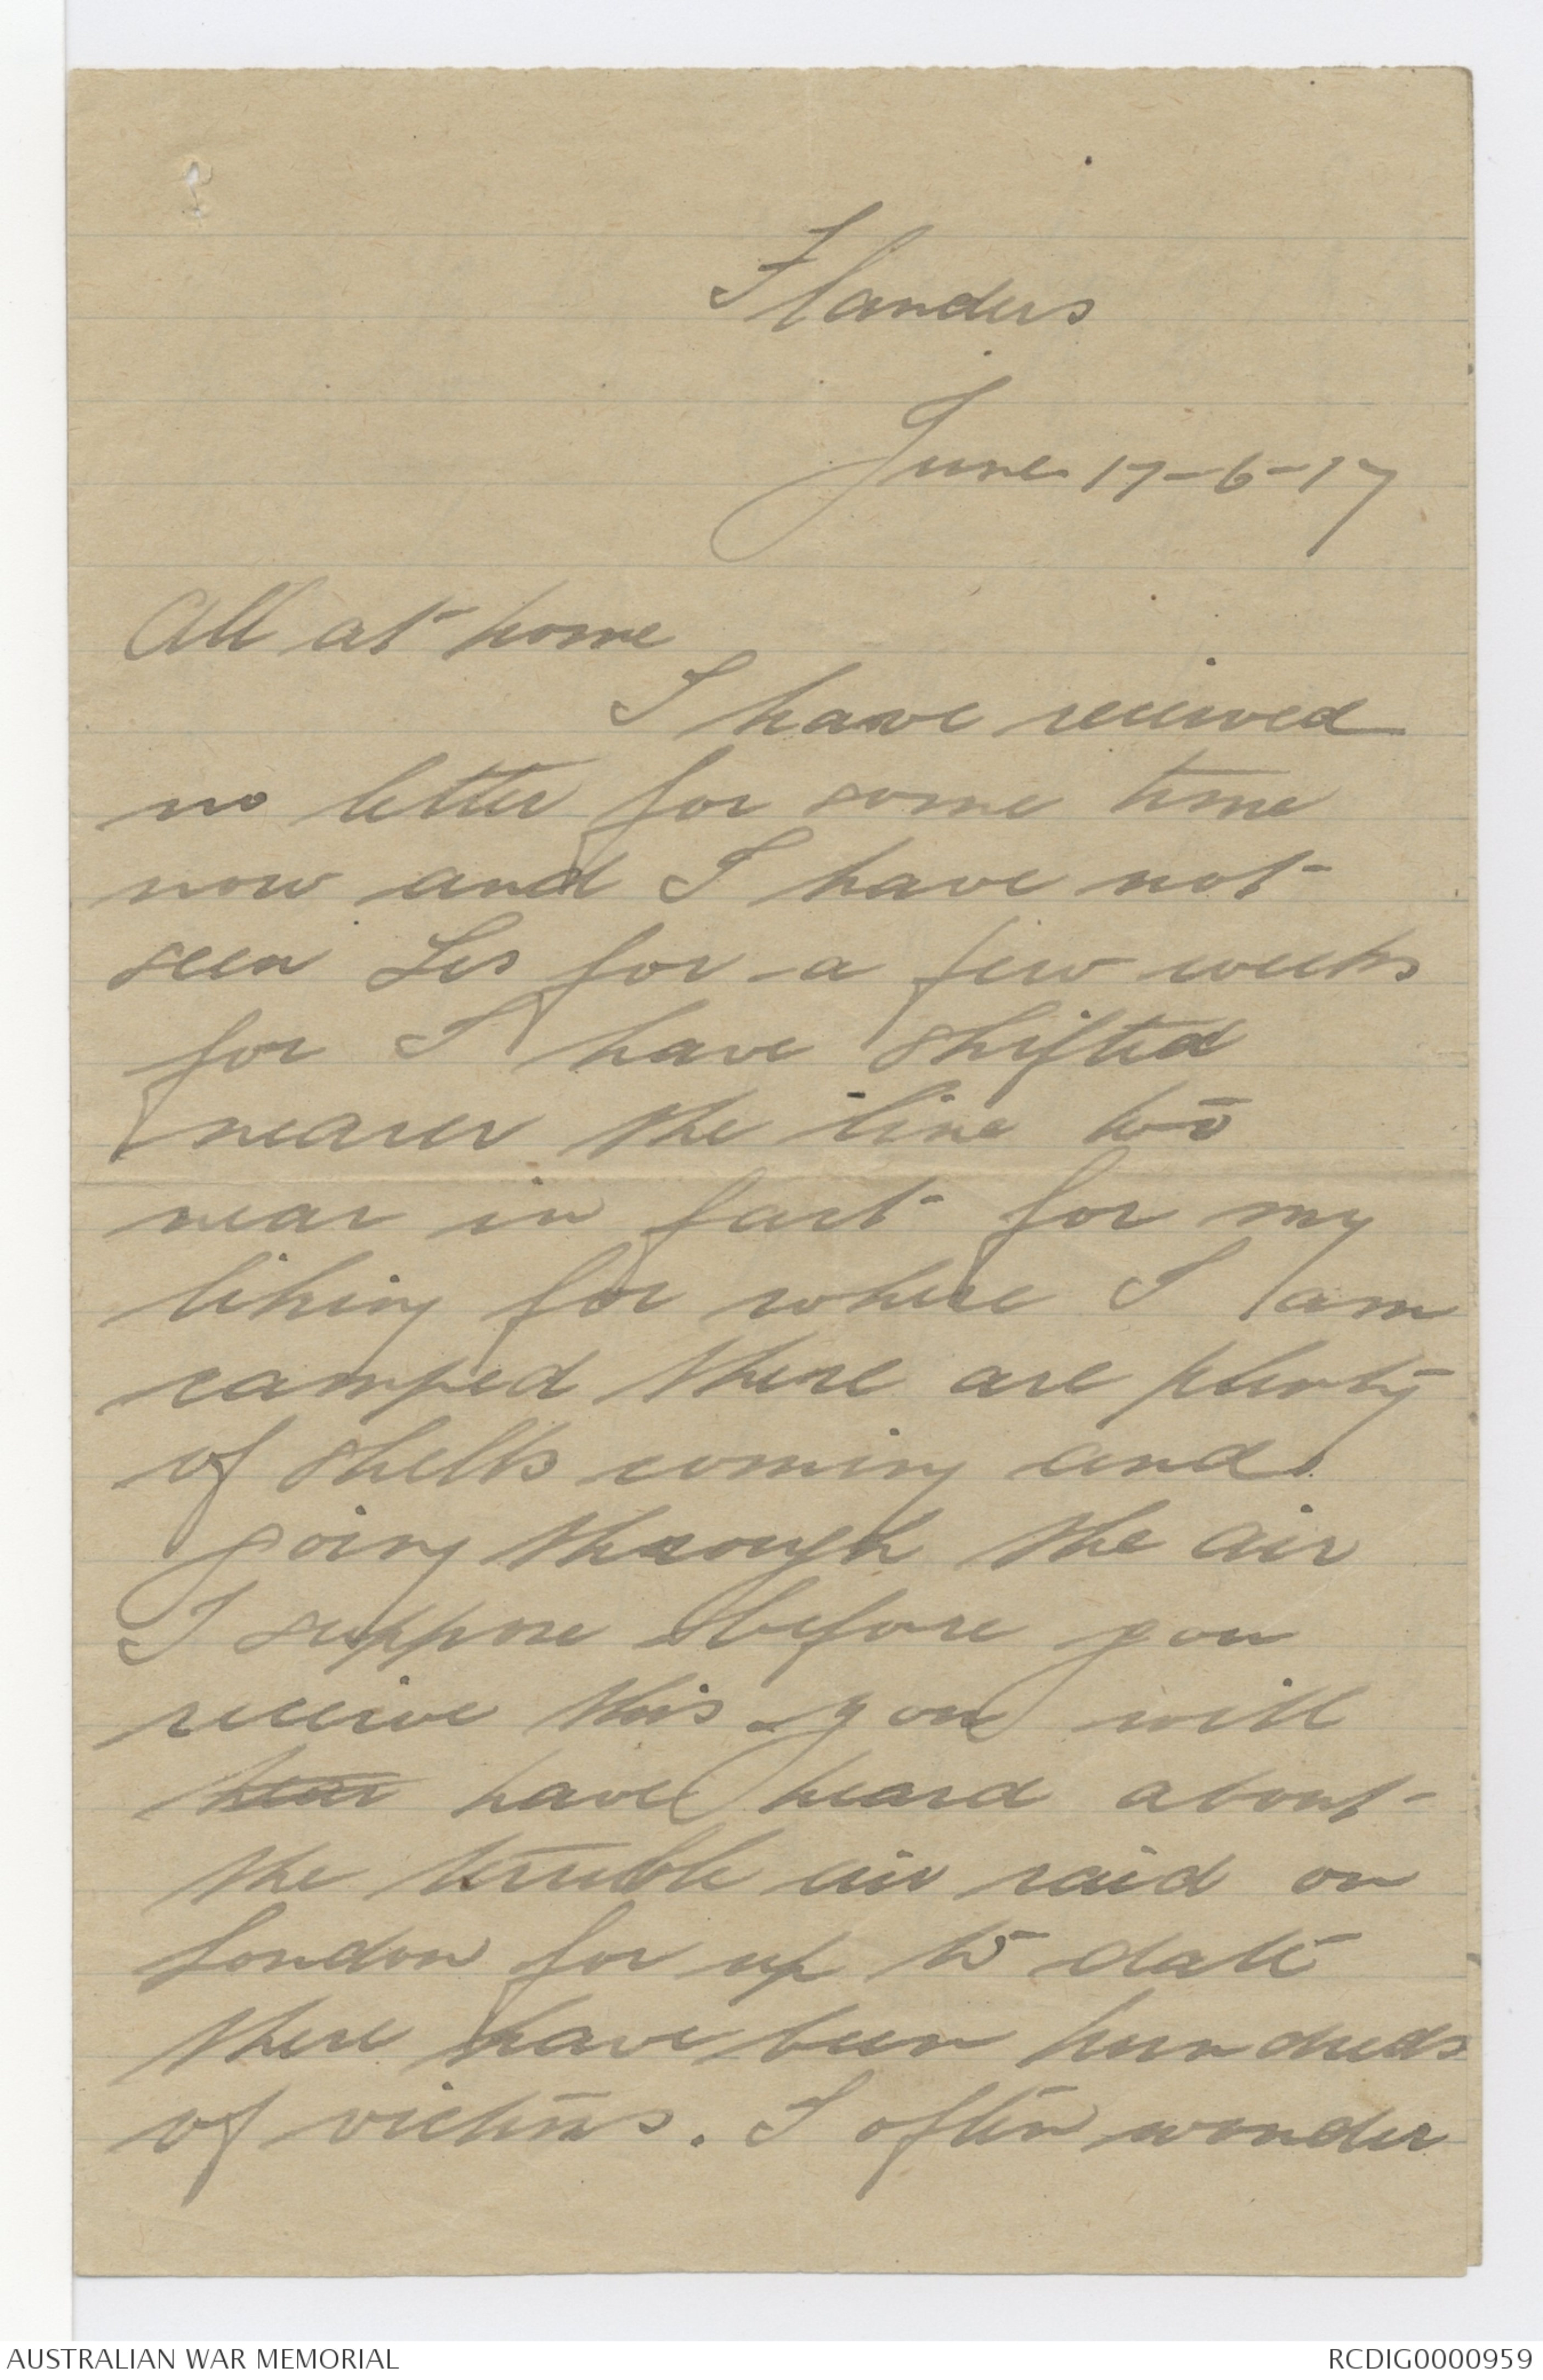 Flanders
June 17-6-17
All at home
I have recieved
no letter for some time
now and I have not
seen Les for a few weeks
for I have shifted
nearer the line too
near in fact for my
liking for where I am
camped there are plenty
of shells coming and
going through the air
I suppose before you
receive this you will
hear have heard about
the terrible air raid on
London for up to date
there have been hundreds
of victims. I often wonder
AUSTRALIAN WAR MEMORIAL
RCDIG0000959